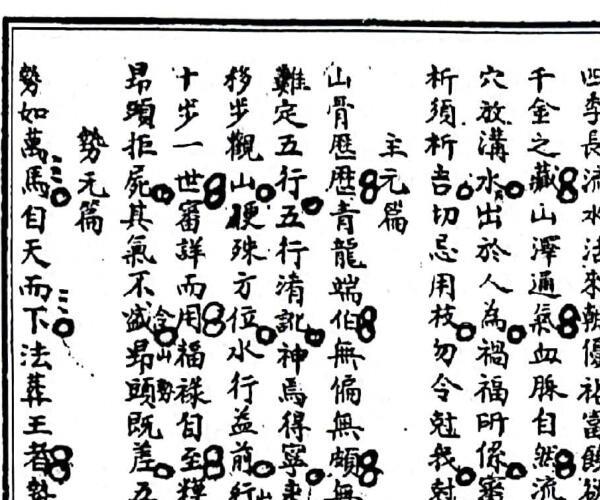 四季長流水法來朝優裕富饒
千金之藏山澤通氣血脉自然流
穴放溝水出於人為禍福所係
析須析吉切忌用枝勿令尅我尅
主元篇
山骨歷歷青龍端化無偏無頗無
難定五行五行淆訛神馬得寧
移步觀山便殊方位水行益前行
十步一世審詳而用福祿自至
昂頭拒屍其氣不盛昂頭既差五
念山勢
勢元篇
勢如萬馬自天而下法葬王者勢